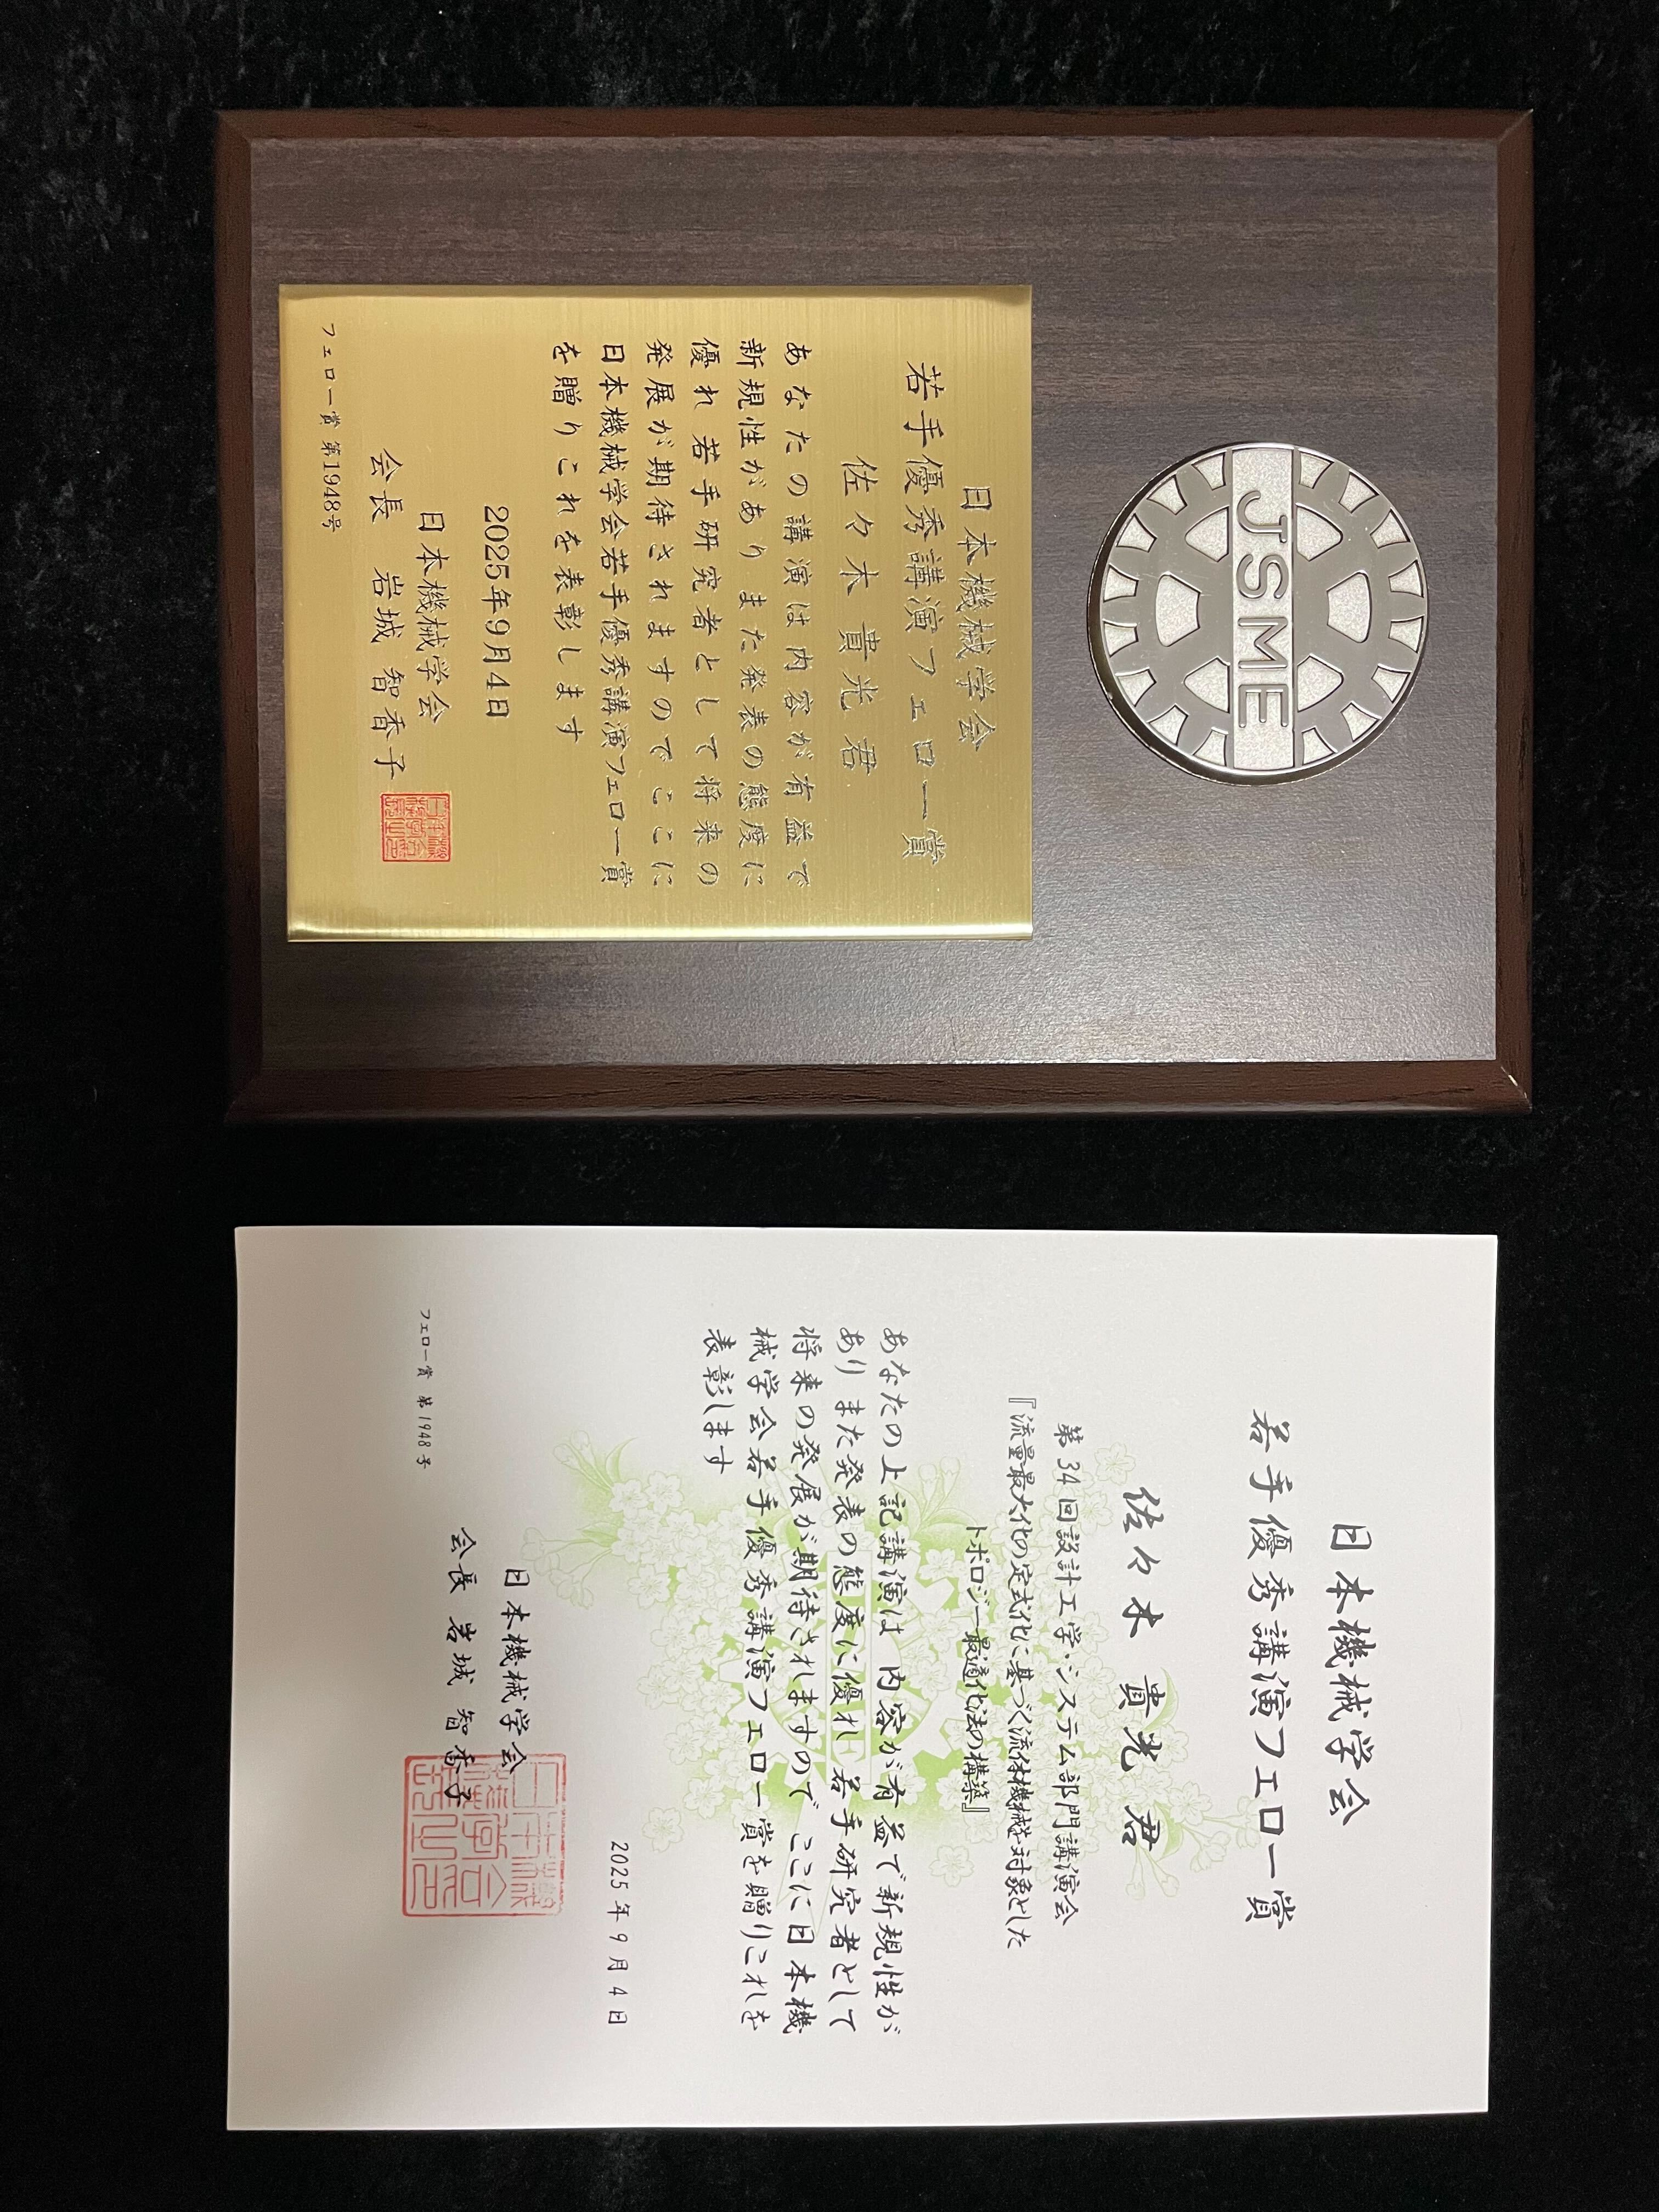 JSME
日本機械学会
若手優秀講演フェロー賞
佐々木 貴光 君
あなたの講演は内容が有益で
新規性がありまた発表の態度に
優れ 若手研究者として将来の
発展が期待されますのでここに
日本機械学会若手優秀講演フェロー賞
を贈りこれを表彰します
2025年9月4日
日本機械学会
会長 岩城 智香子
フェロー賞 第1948号
日本機械学会
若手優秀講演フェロー賞
佐々木 貴光 君
第34回設計工学・システム部門講演会
『流量最大化の定式化に基づく流体機械を対象とした
トポロジー最適化法の構築』
あなたの上記講演は 内容が有益で新規性が
あり また発表の態度に優れ 若手研究者として
将来の発展が期待されますので ここに日本機
械学会若手優秀講演フェロー賞を贈りこれを
表彰します
2025年9月4日
日本機械学会
会長 岩城 智香子
フェロー賞 第1948号